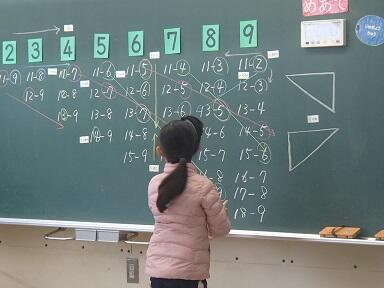 めあて
2 3 4 5 6 7 8 9
11-9 11-8 11-7 11-6 11-5 11-4 11-3 11-2
12-9 12-8 12-7 12-6 12-5 12-4 12-3
13-9 13-8 13-7 13-6 13-5 13-4
14-9 14-8 14-6 14-5
15-9 15-7 15-6
16-8 16-7
17-8
18-9